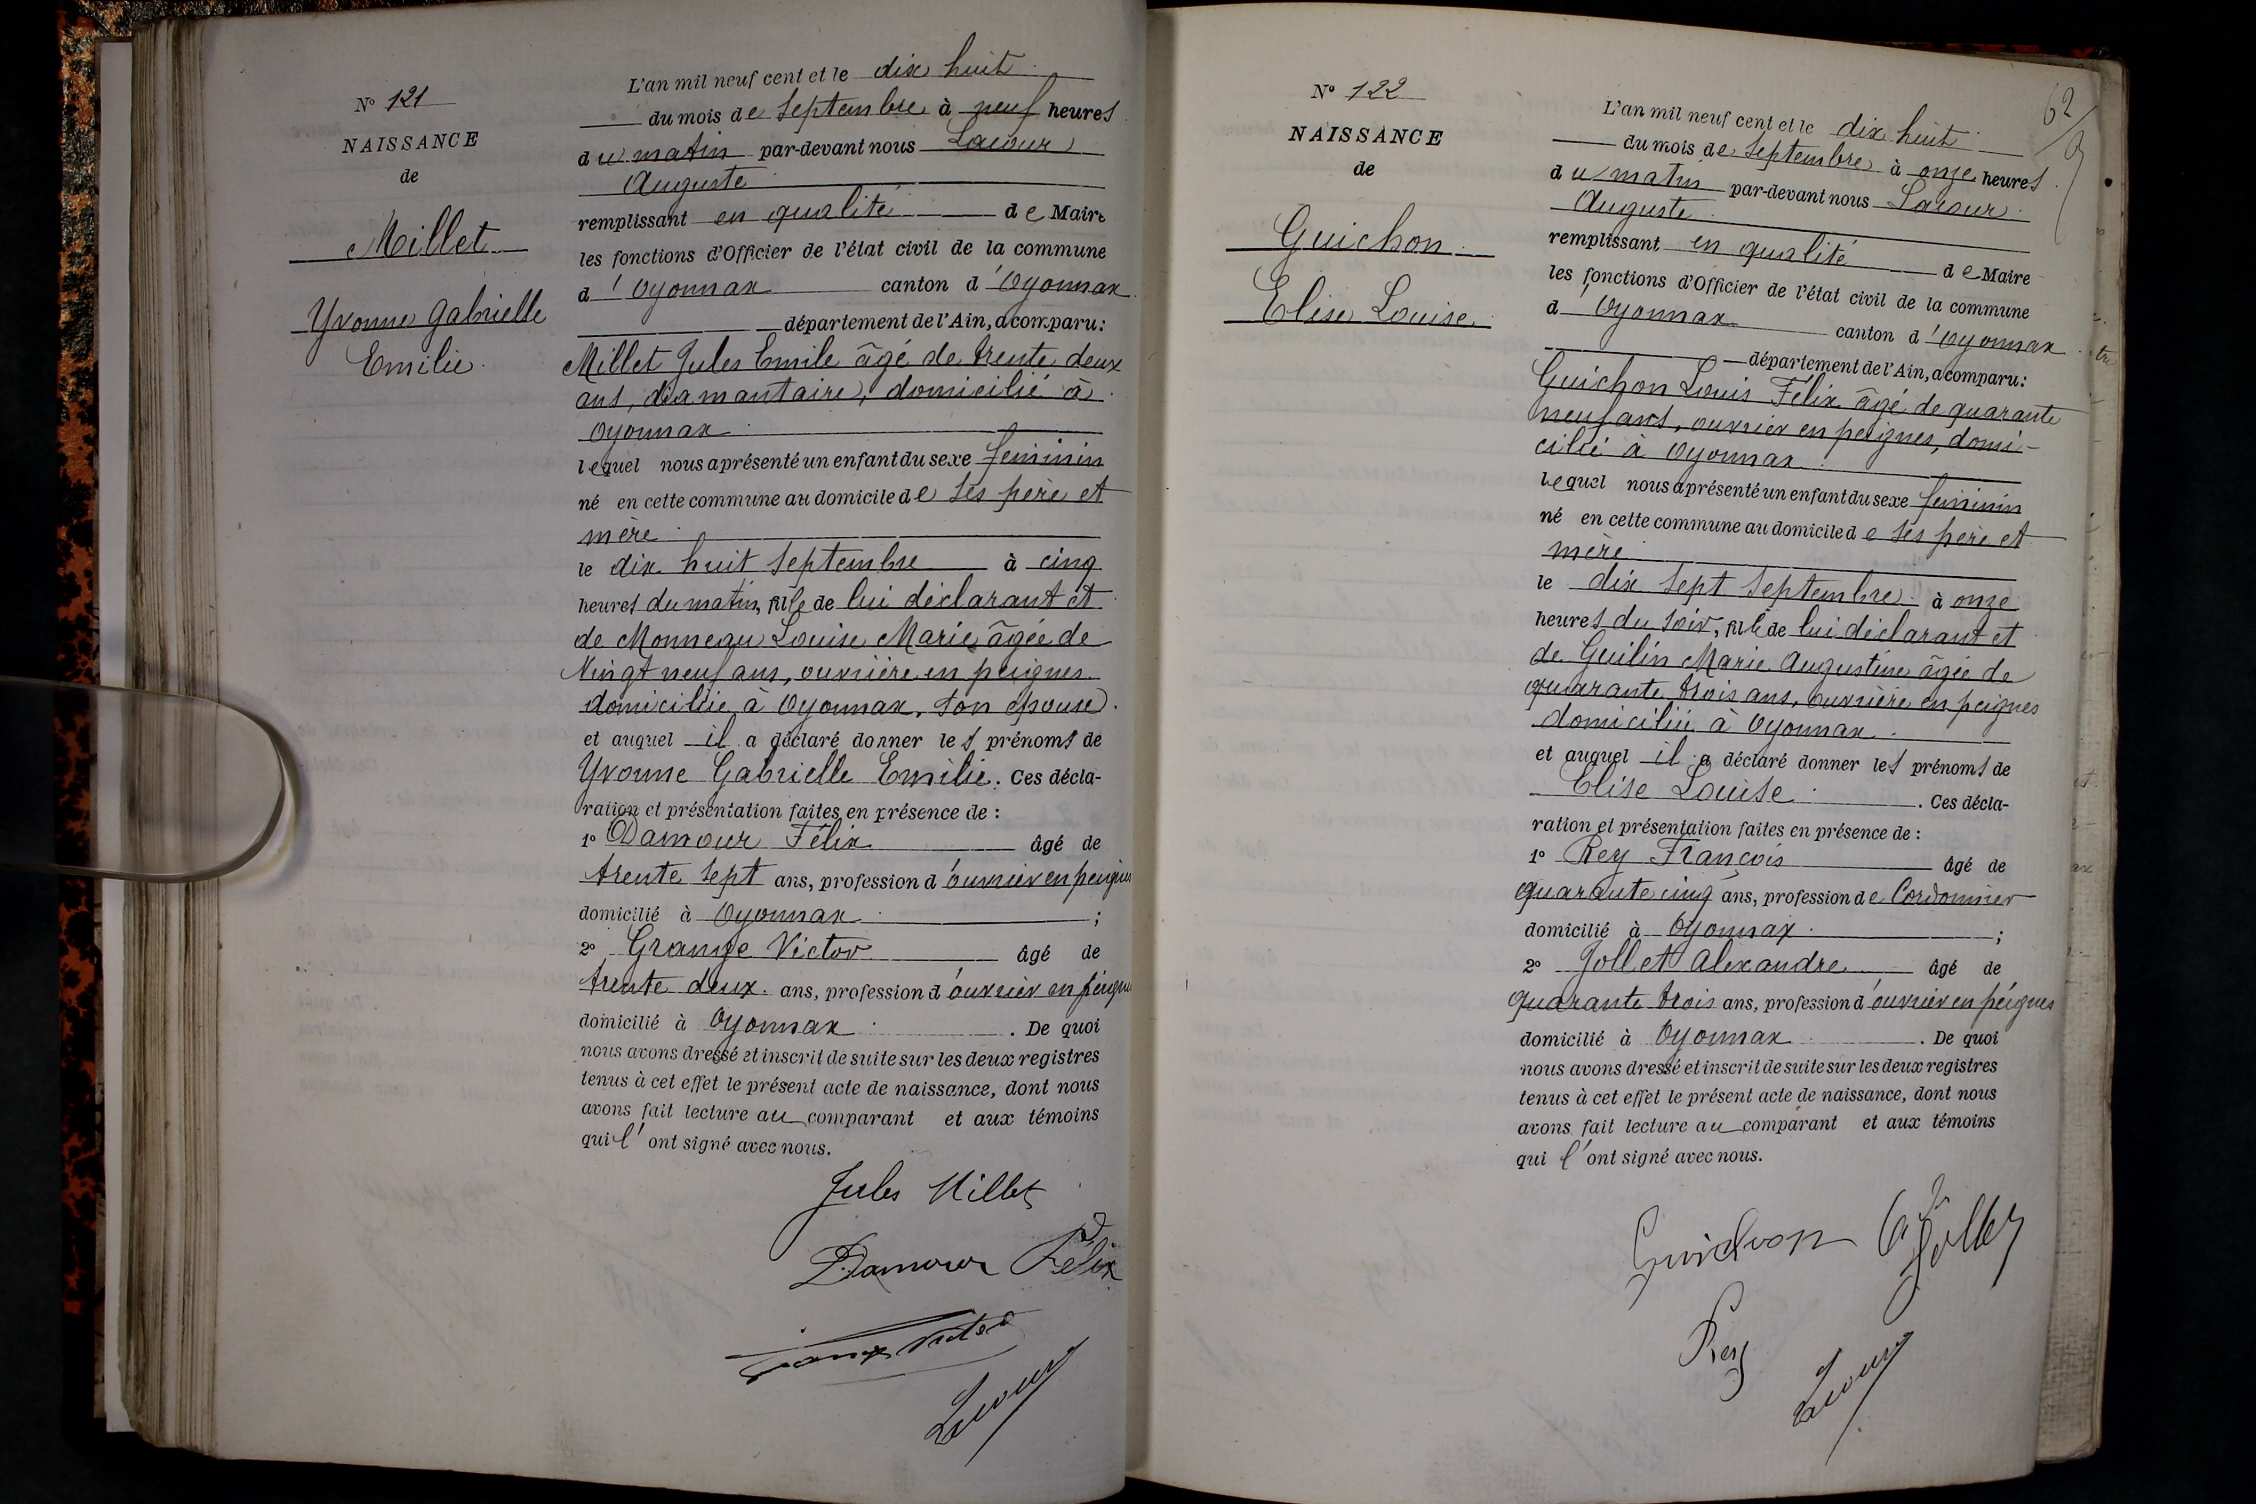 N° 121
NAISSANCE
de
Millet
Yvonne Gabrielle
Emilie.
L'an mil neuf cent et le dix huit
du mois de Septembre à neuf heures
du matin par-devant nous Lacour
Auguste
remplissant en qualité de Maire
les fonctions d'Officier de l'état civil de la commune
d'Oyonnax canton d'Oyonnax
département de l'Ain, a comparu:
Millet Jules Emile âgé de trente deux
ans, diamantaire, domicilié à
Oyonnax
lequel nous a présenté un enfant du sexe féminin
né en cette commune au domicile de ses père et
mère
le dix huit Septembre à cinq
heures du matin, fille de lui déclarant et
de Monneau Louise Marie âgée de
Vingt neuf ans, ouvrière en peignes
domiciliée à Oyonnax, son épouse.
et auquel il a déclaré donner les prénoms de
Yvonne Gabrielle Emilie. Ces décla-
ration et présentation faites en présence de :
1° Damour Félix âgé de
trente sept ans, profession d'ouvrier en peignes
domicilié à Oyonnax ;
2° Grange Victor âgé de
trente deux ans, profession d'ouvrier en peignes
domicilié à Oyonnax . De quoi
nous avons dressé et inscrit de suite sur les deux registres
tenus à cet effet le présent acte de naissance, dont nous
avons fait lecture au comparant et aux témoins
qui l'ont signé avec nous.
Jules Millet
Damour Félix
Grange Victor
Lacour
62
N° 122
NAISSANCE
de
Guichon
Elise Louise
L'an mil neuf cent et le dix huit
du mois de Septembre à onze heures
du matin par-devant nous Lacour
Auguste
remplissant en qualité de Maire
les fonctions d'Officier de l'état civil de la commune
d'Oyonnax canton d'Oyonnax
département de l'Ain, a comparu:
Guichon Louis Félix âgé de quarante
neuf ans, ouvrier en peignes, domi-
cilié à Oyonnax
lequel nous a présenté un enfant du sexe féminin
né en cette commune au domicile de ses père et
mère
le dix sept Septembre à onze
heures du soir, fille de lui déclarant et
de Guilin Marie Augustine âgée de
quarante trois ans, ouvrière en peignes
domiciliée à Oyonnax
et auquel il a déclaré donner les prénoms de
Elise Louise . Ces décla-
ration et présentation faites en présence de :
1° Rey François âgé de
quarante cinq ans, profession de Cordonnier
domicilié à Oyonnax ;
2° Jollet Alexandre âgé de
quarante trois ans, profession d'ouvrier en peignes
domicilié à Oyonnax . De quoi
nous avons dressé et inscrit de suite sur les deux registres
tenus à cet effet le présent acte de naissance, dont nous
avons fait lecture au comparant et aux témoins
qui l'ont signé avec nous.
Guichon Jollet
Rey
Lacour